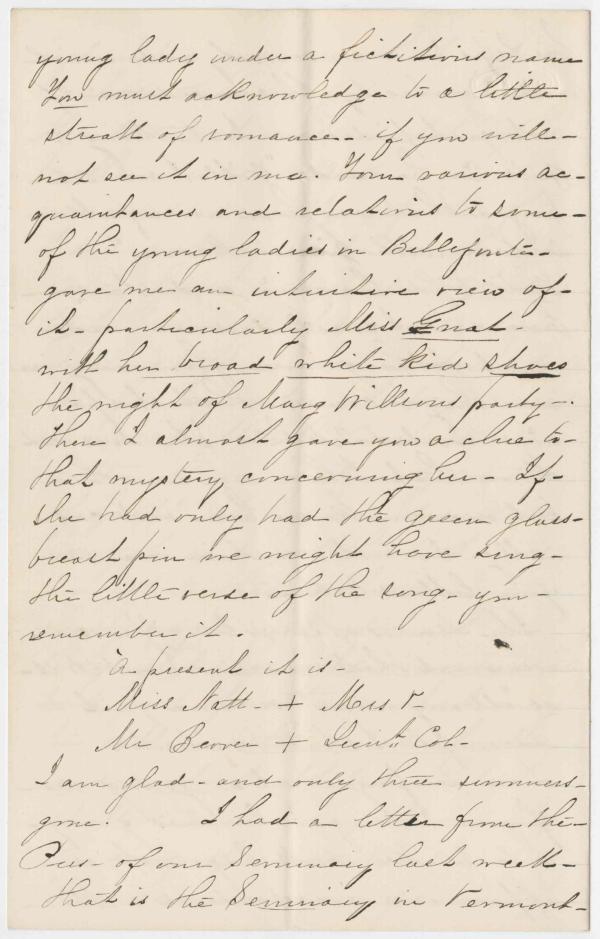 young lady under a fictitious name
You must acknowledge to a little
streak of romance - if you will -
not see it in me. Your various ac-
quaintances and relations to some -
of the young ladies in Bellefonte -
gave me an intuitive view of -
it - particularly Miss Gnat -
with her broad white kid shoes
the night of Mary Willsons party -.
There I almost gave you a clue to -
that mystery concerning her - If -
she had only had the green glass -
breast pin we might have sung -
the little verse of the song - you -
remember it.
À present it is -
Miss Natt - + Mrs V -
Mr Beaver + Lieut. Col -
I am glad - and only three summers -
gone. I had a letter from the -
Pres - of our Seminary last week -
that is the Seminary in Vermont -